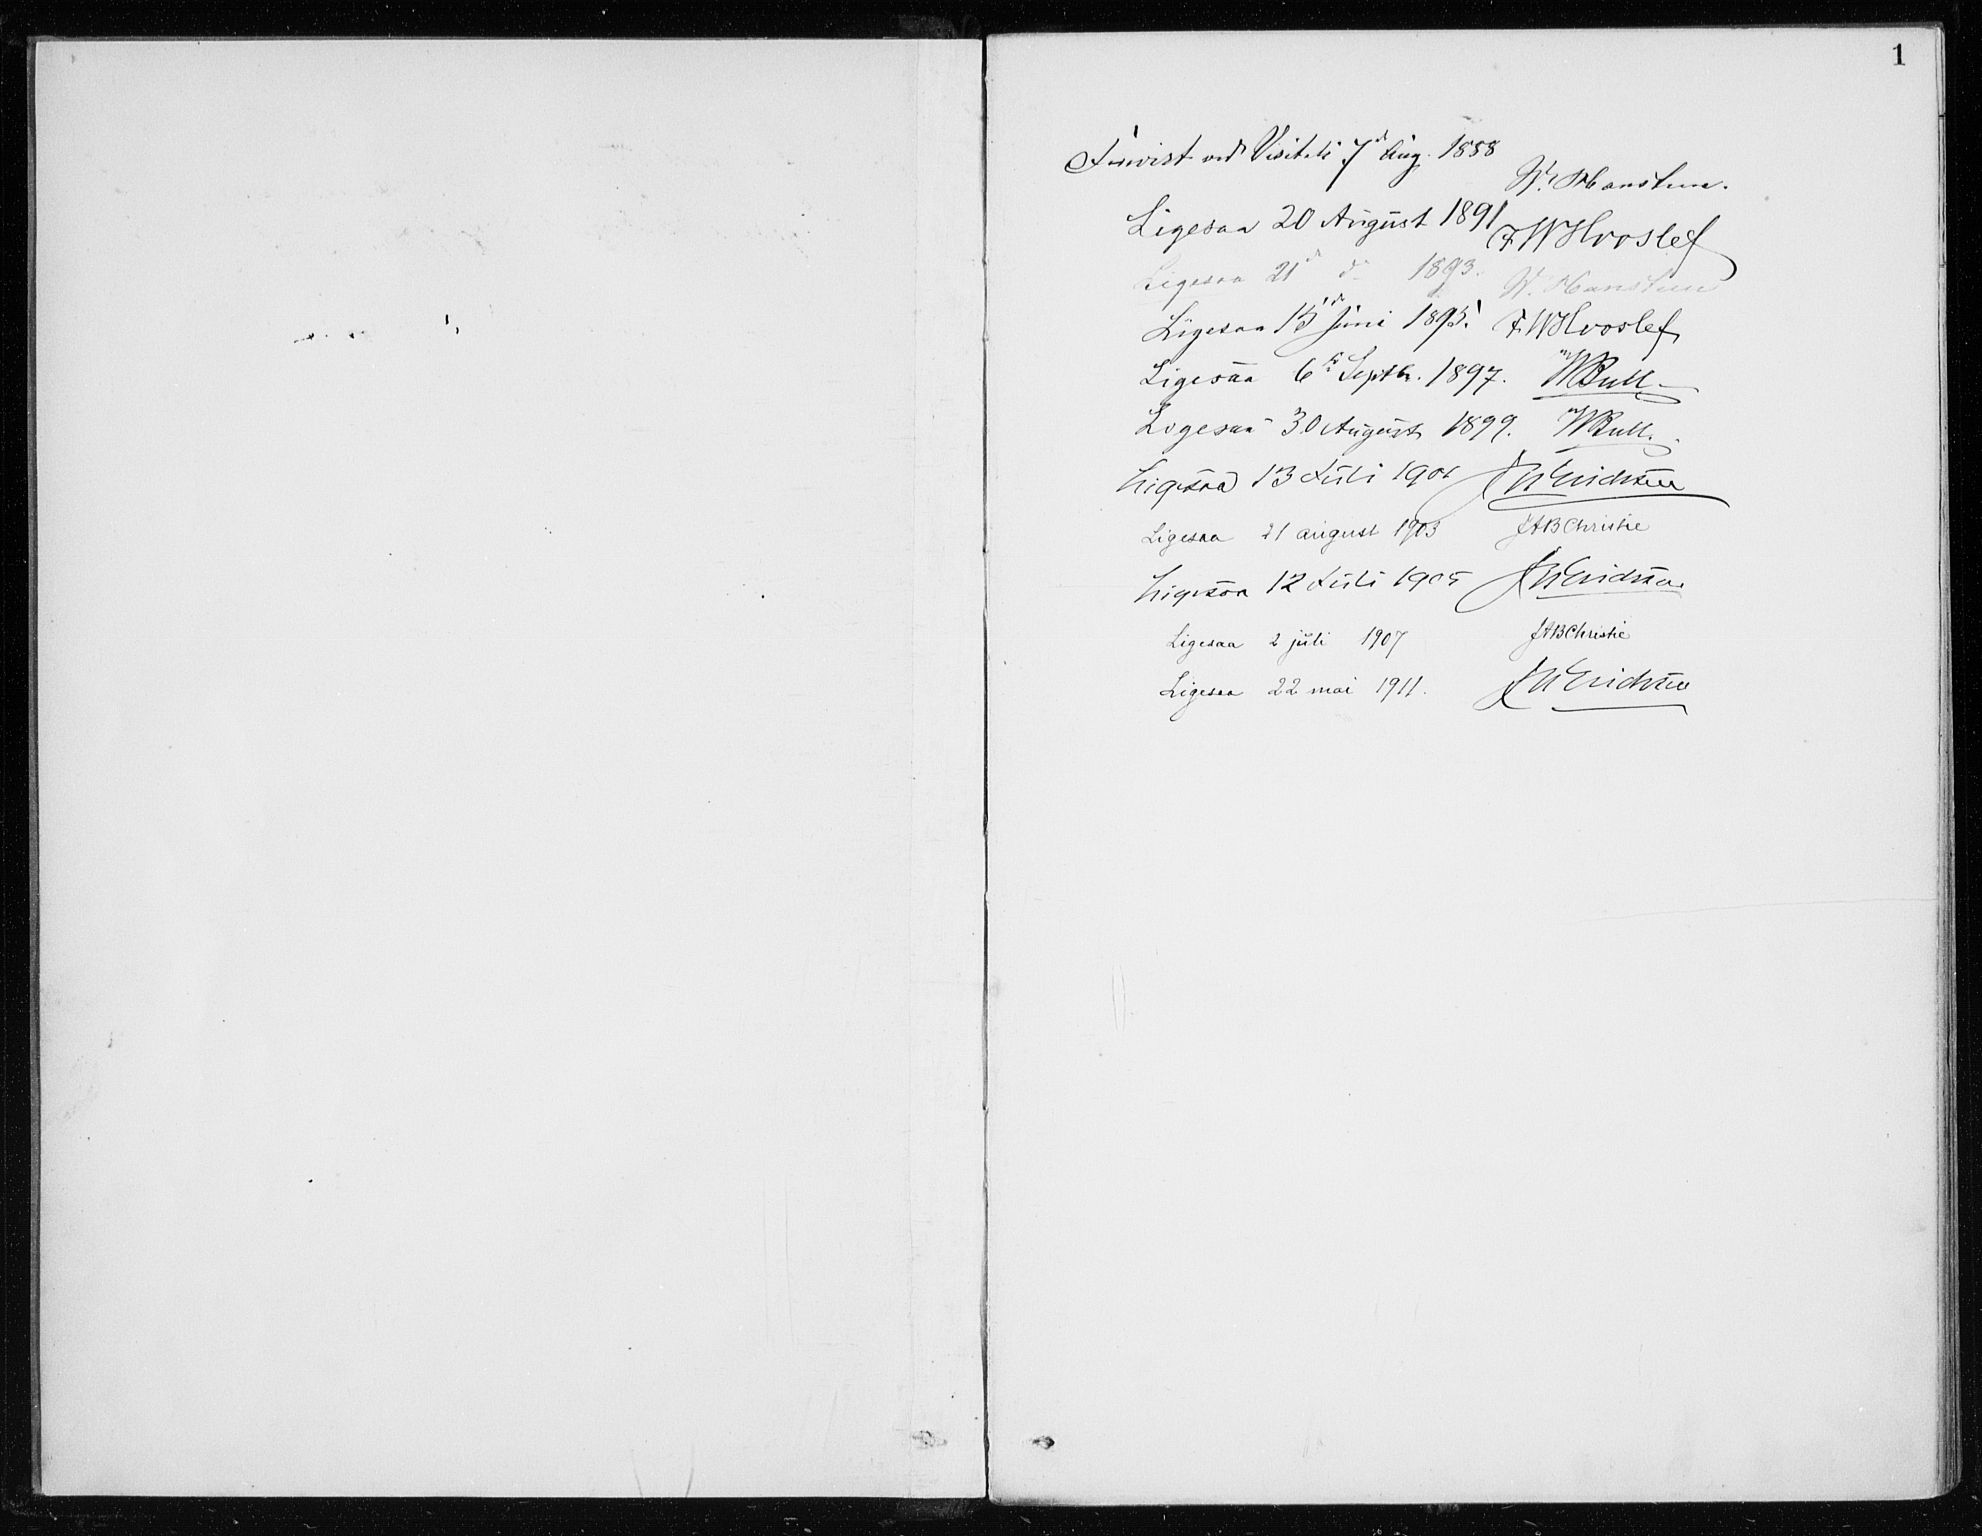 1
Forevist ved Visitats 7de Aug. 1888
W. Hansteen.
Ligesaa 20 August 1891 F W Hvoslef
Ligesaa 21de do 1893. W. Hansteen
Ligesaa 15de Juni 1895. F. W Hvoslef
Ligesaa 6te Septbr. 1897. W Bull
Ligesaa 30 August 1899. W Bull.
Ligesaa 13 Juli 1901 Erichsen
Ligesaa 21 august 1903 JAB Christie
Ligesaa 12 Juli 1905 Erichsen
Ligesaa 2 juli 1907 JAB Christie
Ligesaa 22 mai 1911. Erichsen